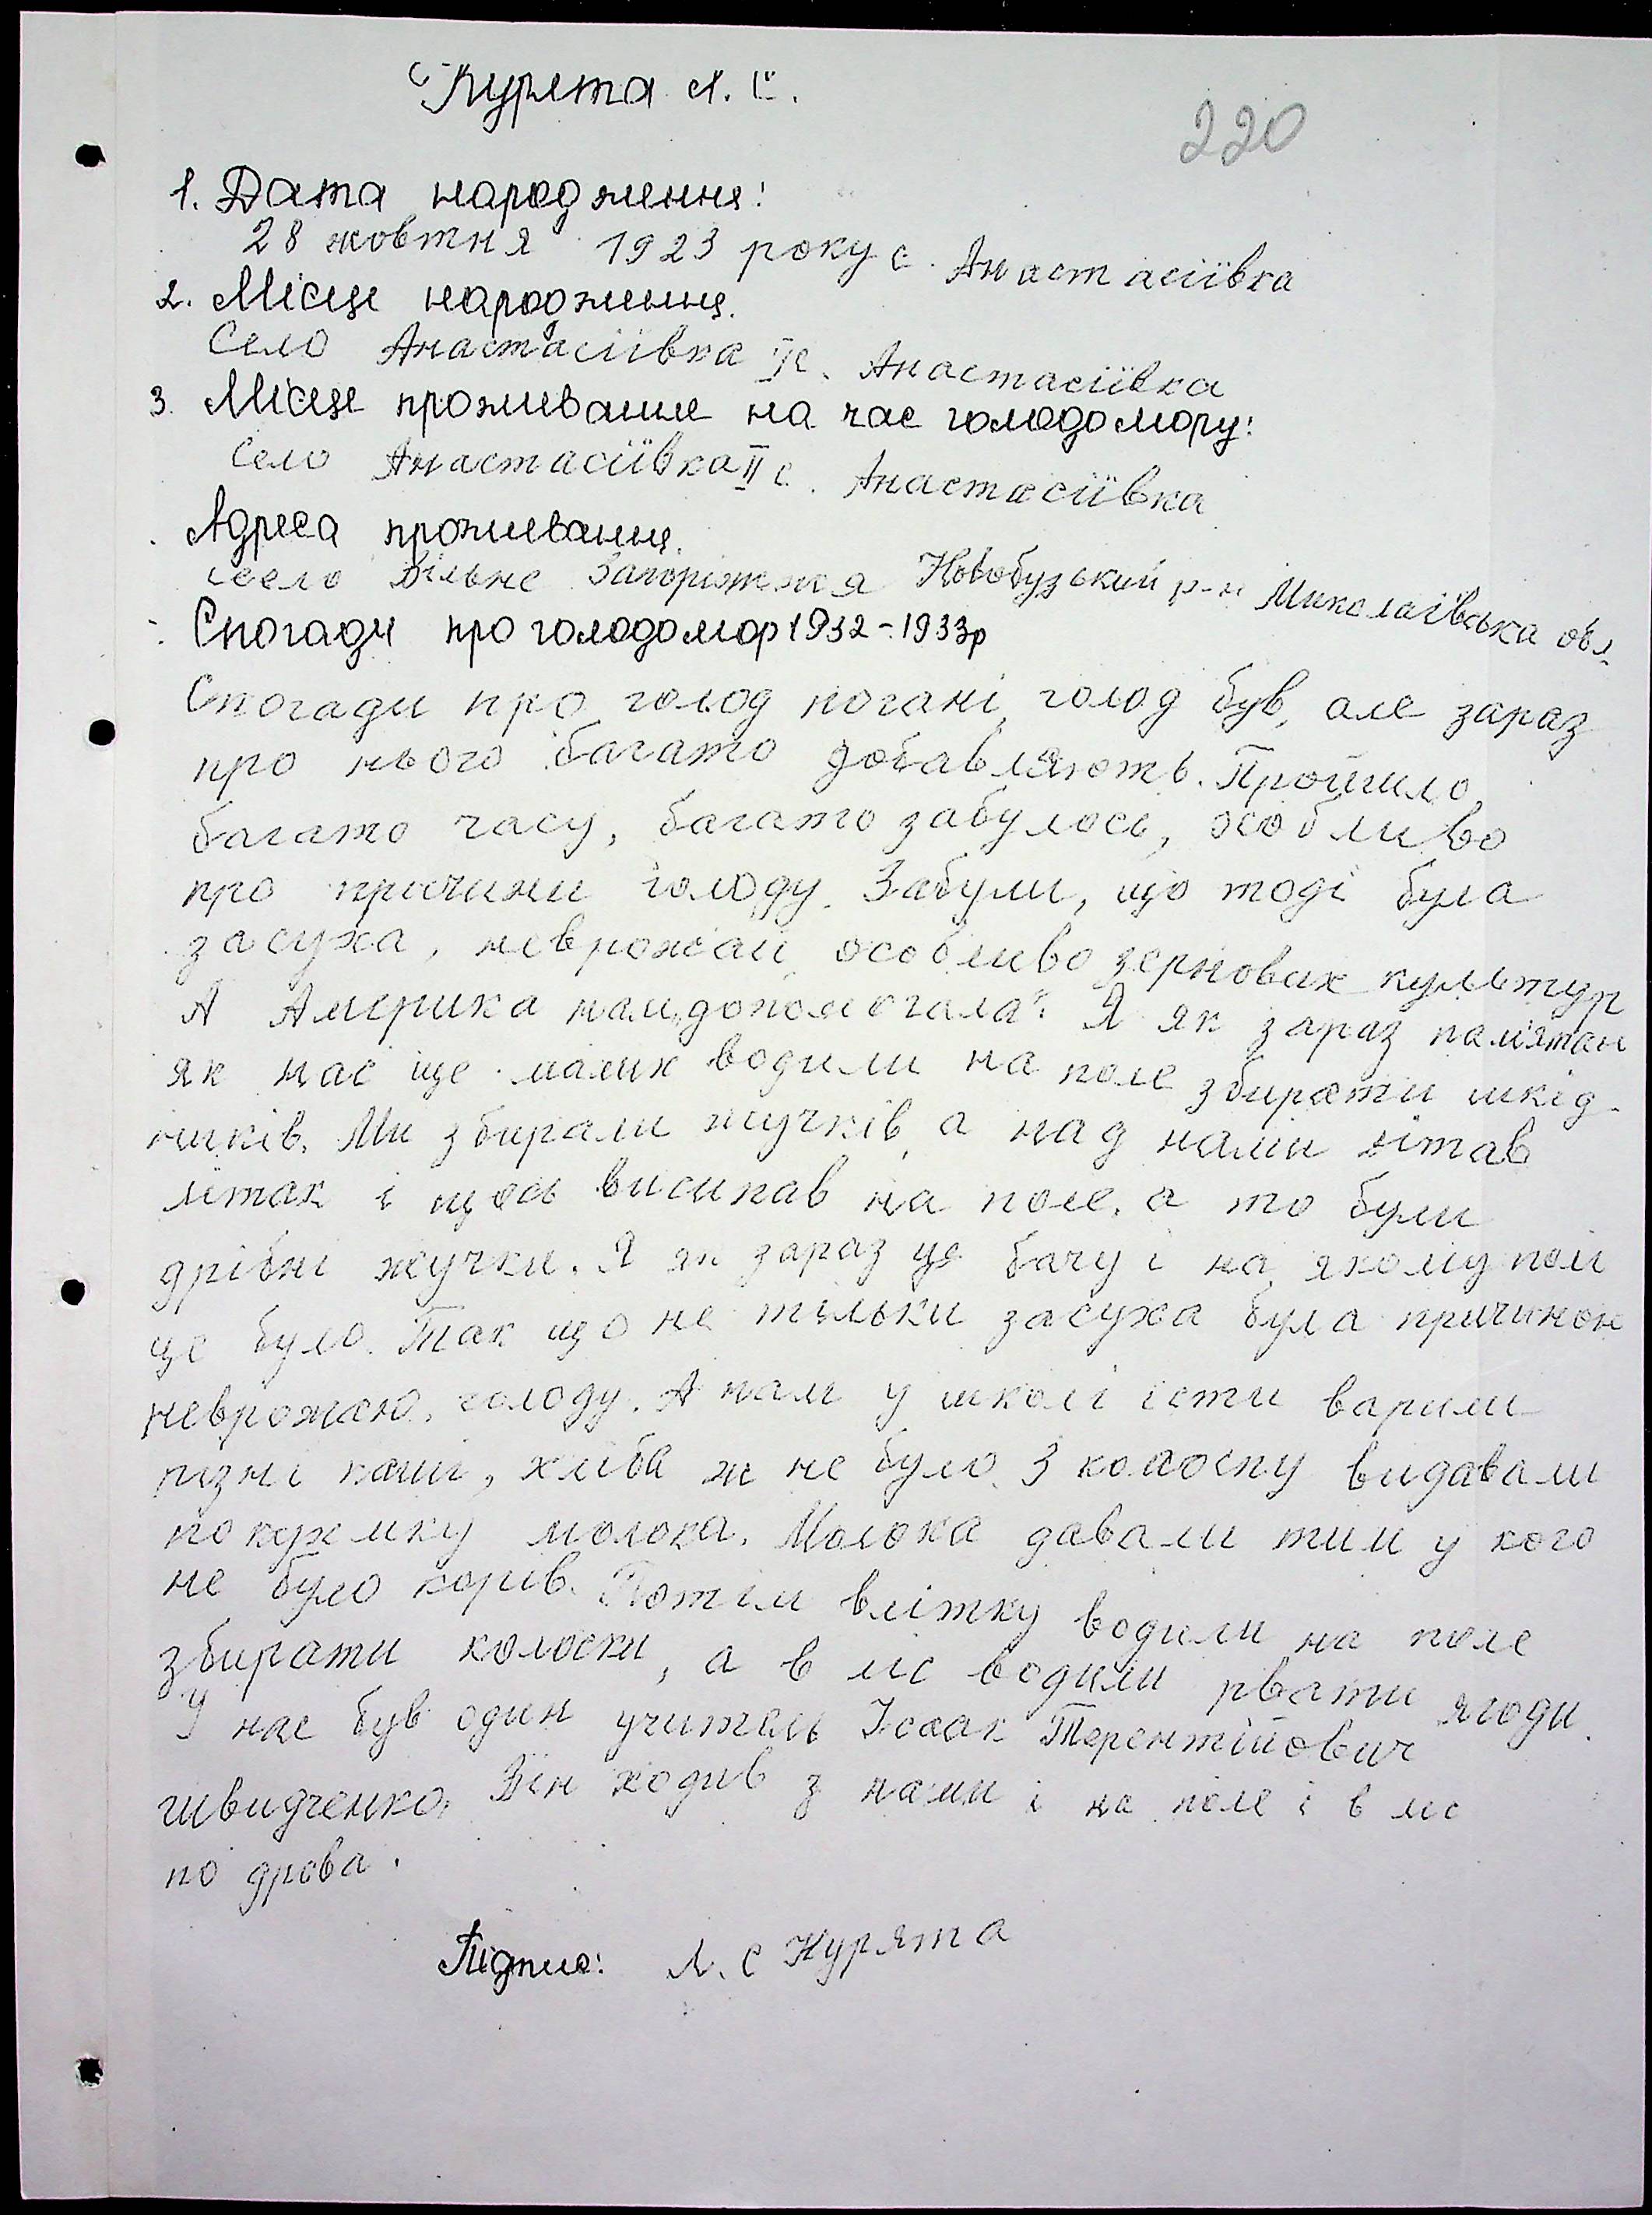 Курята Л. С.
220
1. Дата народження:
28 жовтня 1923 року с. Анастасіївка
2. Місце народження.
Село Анастасіївка с. Анастасіївка
3. Місце проживання на час голодомору:
Село Анастасіївка II с. Анастасіївка
Адреса проживання.
село Вільне Запоріжжя Новобузький р-н Миколаївська обл.
Спогади про голодомор 1932-1933р
Спогади про голод погані, голод був, але зараз
про нього багато добавляють. Пройшло
багато часу, багато забулось, особливо
про причини голоду. Забули, що тоді була
засуха, неврожай особливо зернових культур
А Америка нам "допомогала". Я як зараз пам'ятаю
як нас ще малих водили на поле збирати шкід-
ників. Ми збирали жучків, а над нами літав
літак і щось висипав на поле, а то були
дрібні жучки. Я як зараз це бачу і на якому полі
це було. Так що не тільки засуха була причиною
неврожаю, голоду. А нам у школі їсти варили
різні каші, хліба ж не було. З колгоспу видавали
по кухлику молока. Молока давали тим у кого
не було корів. Потім влітку водили на поле
збирати колоски, а в ліс водили рвати ягоди.
У нас був один учитель Ісаак Терентійович
Швидченко. Він ходив з нами і на поле і в ліс
по дрова.
Підпис: Л. С Курята